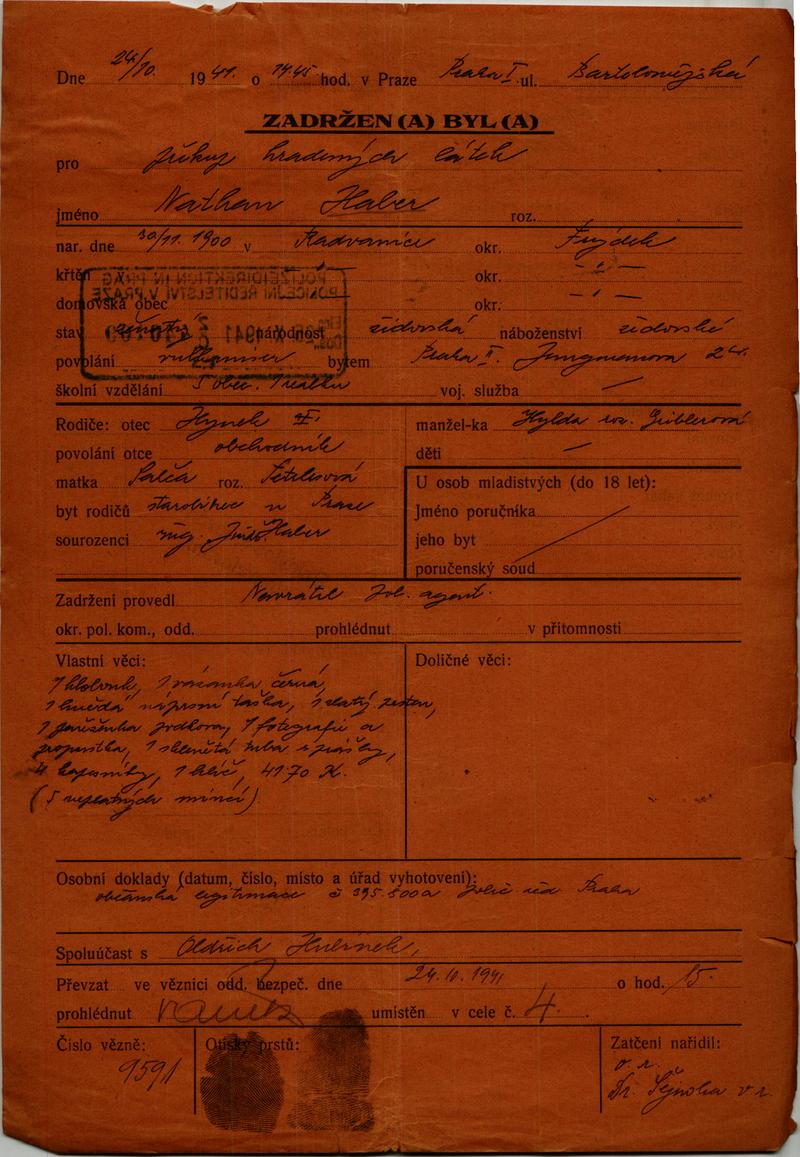 Dne 24/10. 1941. o 14.45 hod. v Praze Praha I ul. Bartolomějská
ZADRŽEN (A) BYL (A)
pro látek
jméno Nathan Haber roz.
nar. dne 30/11. 1900 v Radvanice okr. Frýdek
křtěn okr. - „ -
domovská obec okr. - „ -
stav ženatý národnost židovská náboženství židovské
povolání bytem Praha II. Jungmanova 24.
školní vzdělání 5 obec. voj. služba —
Rodiče: otec Hynek
povolání otce obchodník
matka Salča roz.
byt rodičů v Praze
sourozenci ing. Haber
manžel-ka Hylda roz. Gublerová
děti —
U osob mladistvých (do 18 let):
Jméno poručníka
jeho byt
poručenský soud
Zadržení provedl Navrátil pol. agent.
okr. pol. kom., odd. prohlédnut v přítomnosti
Vlastní věci:
1 klobouk, 1 vázanka černá,
1 hnědá náprsní taška, 1 zlatý prsten,
1 podkova, 1 fotografie a
propustka, 1 sklenětá
4 kapesníky, 1 klíč, 41.70 K.
(5 neplatných mincí)
Doličné věci:
Osobní doklady (datum, číslo, místo a úřad vyhotovení):
občanská legitimace č 395.800a polic. řed. Praha
Spoluúčast s Oldřich
Převzat ve věznici odd. bezpeč. dne 24.10.1941 o hod. 15.
prohlédnut umístěn v cele č. 4.
Číslo vězně:
9591
Otisky prstů:
Zatčení nařídil:
v. r.
Dr. Sejnoha v r.
POLIZEIDIREKTION IN PRAG
POLICEJNÍ ŘEDITELSTVÍ V PRAZE